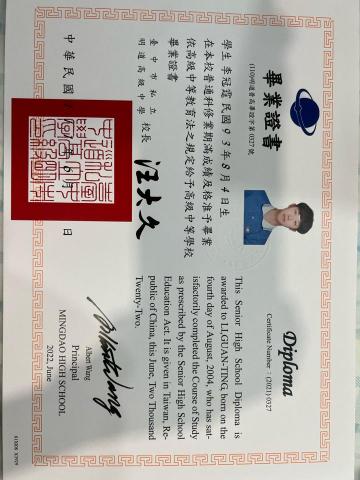 畢業證書
(110)明道普高畢字第0327號
學生李冠霆民國93年8月4日生
在本校普通科修業期滿成績及格准予畢業
依高級中等教育法之規定給予高級中等學校
畢業證書
臺中市私立
明道高級中學 校長 汪大久
中華民國
年6月 日
Diploma
Certificate Number : (2021) 0327
This Senior High School Diploma is
awarded to LI,GUAN-TING, born on the
fourth day of August, 2004, who has sat-
isfactorily completed the Course of Study
as prescribed by the Senior High School
Education Act. It is given in Taiwan, Re-
public of China, this June, Two Thousand
Twenty-Two.
Albert Wang
Albert Wang
Principal
MINGDAO HIGH SCHOOL
2022, June